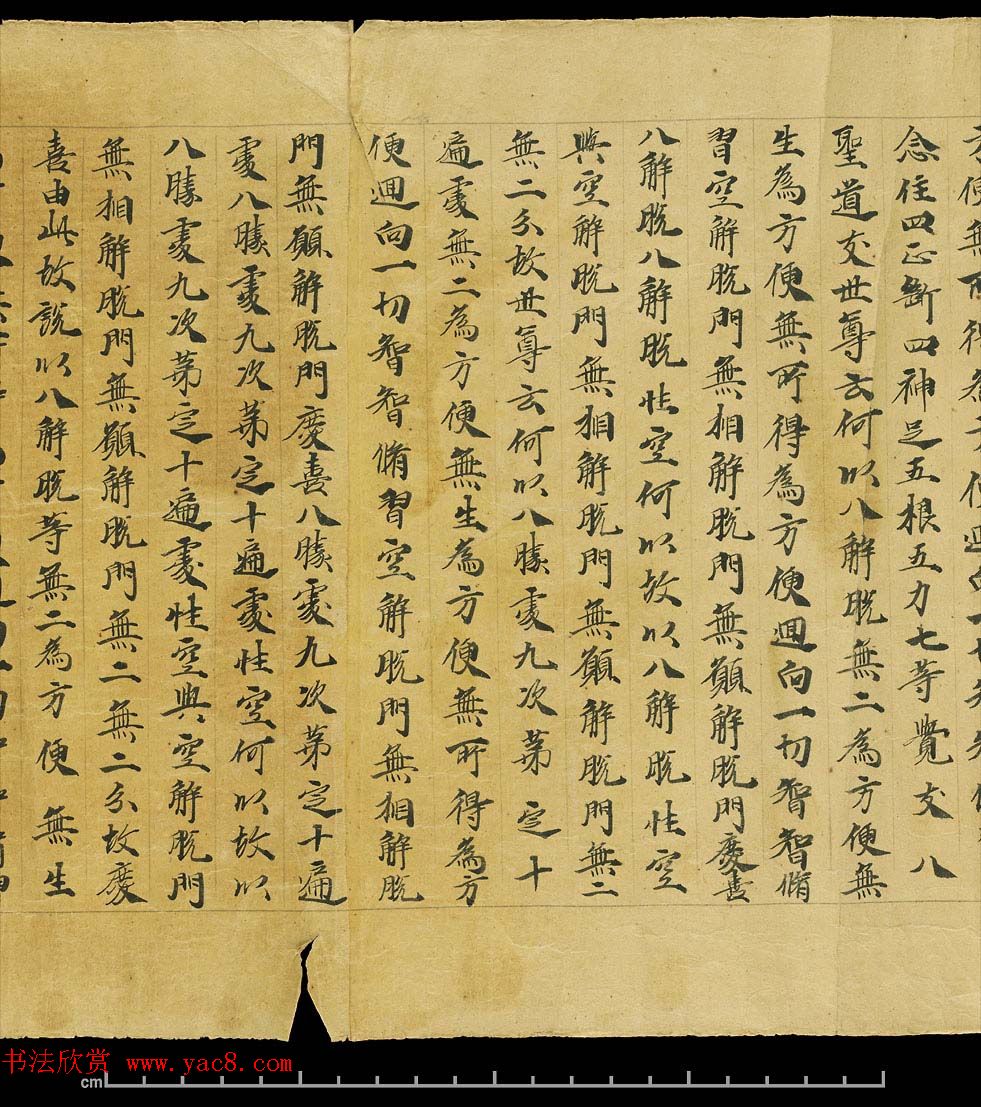 便無所得為方便迴向一切智智
念住四正斷四神足五根五力七等覺支八
聖道支世尊云何以八解脫無二為方便無
生為方便無所得為方便迴向一切智智脩
習空解脫門無相解脫門無願解脫門慶喜
八解脫八解脫性空何以故以八解脫性空
與空解脫門無相解脫門無願解脫門無二
無二分故世尊云何以八勝處九次第定十
遍處無二為方便無生為方便無所得為方
便迴向一切智智脩習空解脫門無相解脫
門無願解脫門慶喜八勝處九次第定十遍
處八勝處九次第定十遍處性空何以故以
八勝處九次第定十遍處性空與空解脫門
無相解脫門無願解脫門無二無二分故慶
喜由此故說以八解脫等無二為方便無生
书法欣赏 www.yac8.com
cm